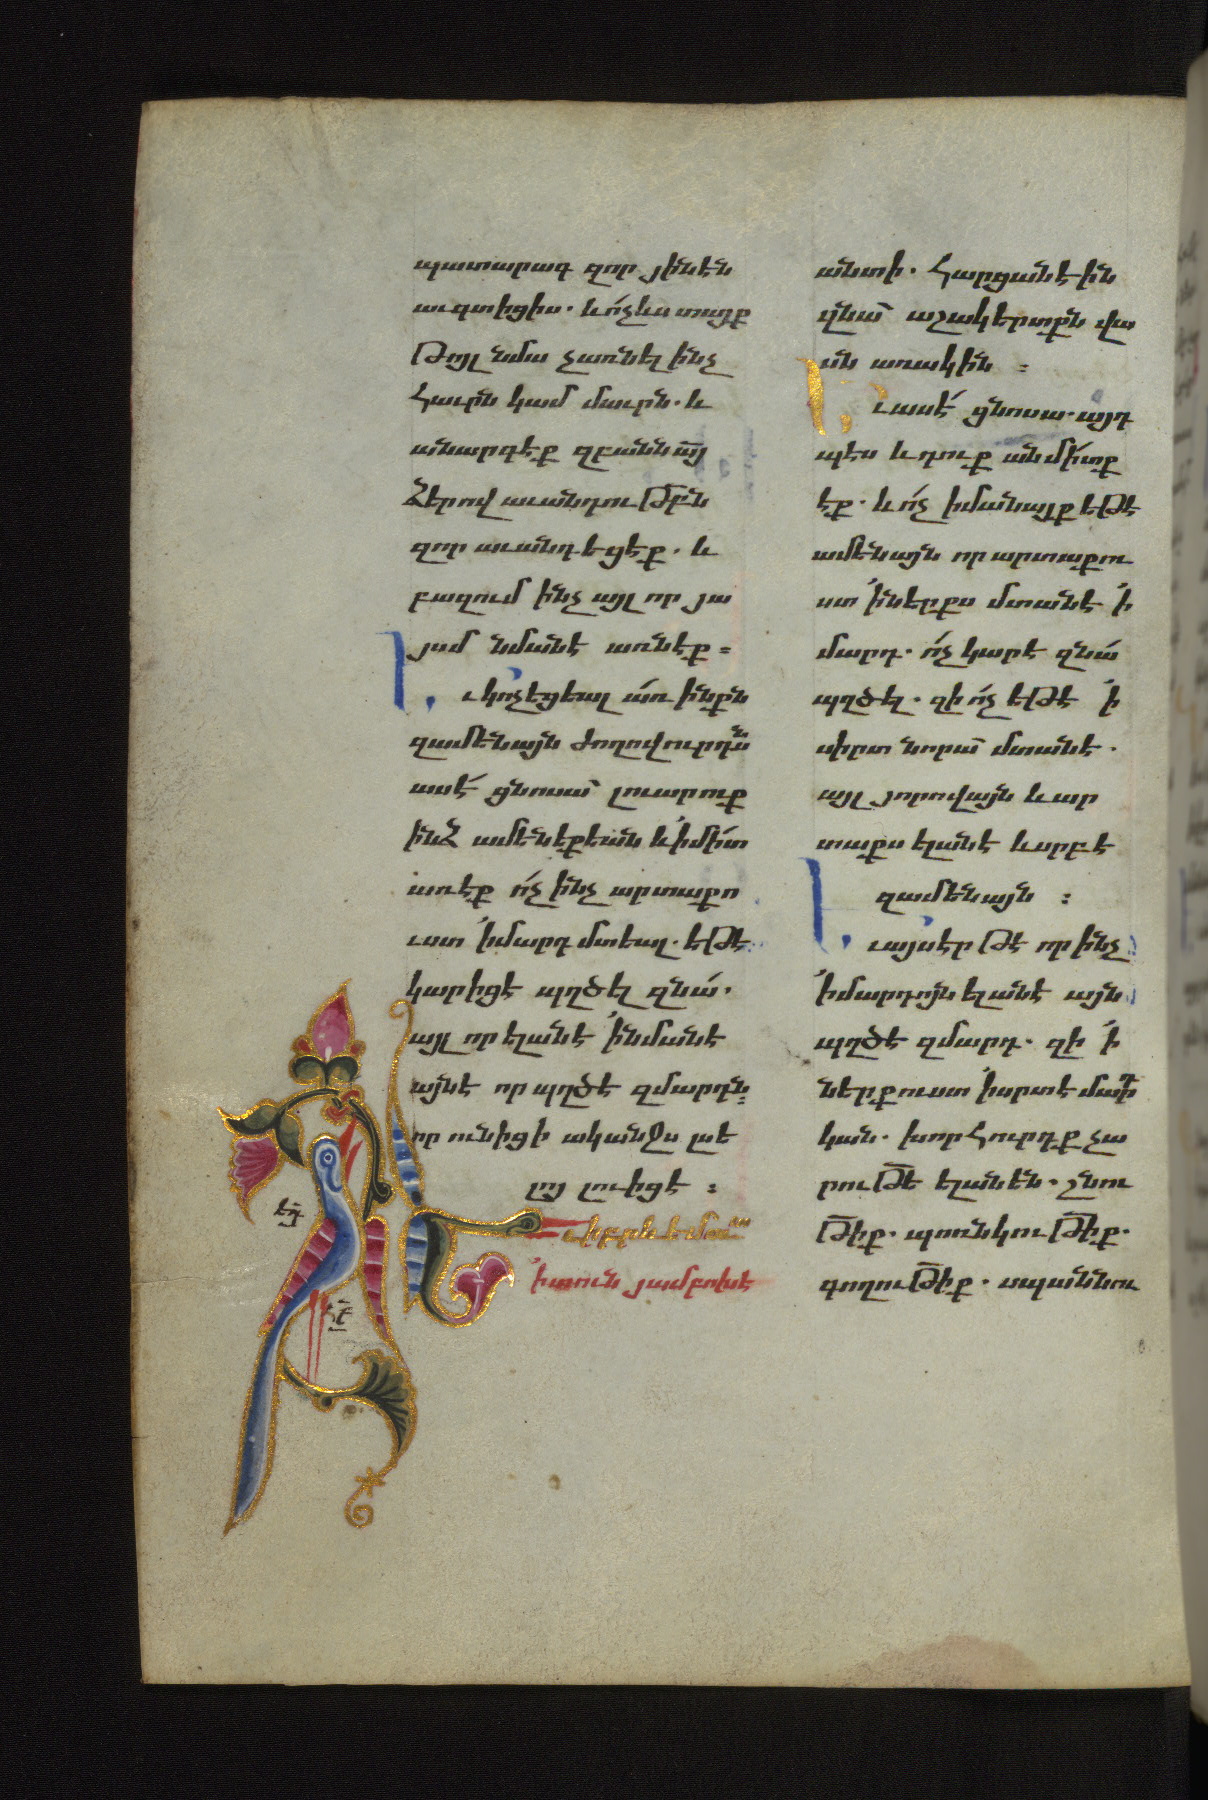 պատարագ զոր յինէն
աւգտիցիս. և ո՛չ ևս տայք
թոյլ նմա չառնել ինչ
հաւրն կամ մաւրն. և
անարգէք զբանն ա՟յ
ձերով աւանդութբն
զոր աւանդեցէք. և
բազում ինչ այլ որ յա
յսմ նմանէ առնէք ։
Ւ կոչեցեալ առ ինքն
զամենայն ժողովուրդսն
ասէ՛ ցնոսա՝ լուարուք
ինձ ամենեքեան և ի միտ
առէք ո՛չ ինչ արտաքո
ւստ ի մարդ մտեալ. եթէ
կարիցէ պղծել զնա՛.
այլ որ ելանէ ի նմանէ
այնէ որ պղծէ զմարդն ։
որ ունիցի ականջս լսե
լոյ լուիցէ ։
եղ
հե
Ւ իբրև եմուտ
ի տուն յամբոխէ
անտի. Հարցանէին
զնա՝ աշակերտքն վա
սն առակին ։
Ւ ասէ՛ ցնոսա. այդ
պէս և դուք անմիտք
էք. և ո՛չ իմանայք եթէ
ամենայն որ արտաքու
ստ ի ներքս մտանէ ՛ի
մարդ. ո՛չ կարէ զնա՛
պղծել. զի ո՛չ եթէ ՛ի
սիրտ նորա՝ մտանէ.
այլ յորովայն և ար
տաքս ելանէ և սրբէ
զամենայն ։
Ւ այսէր թէ որ ինչ
ի մարդոյն ելանէ այն
պղծէ զմարդ. զի ՛ի
ներքուստ ի սրտէ մարդ
կան. խորհուրդք չա
րութե ելանեն. շնու
թիք. պոռնկութիք.
գողութիք. սպաննու